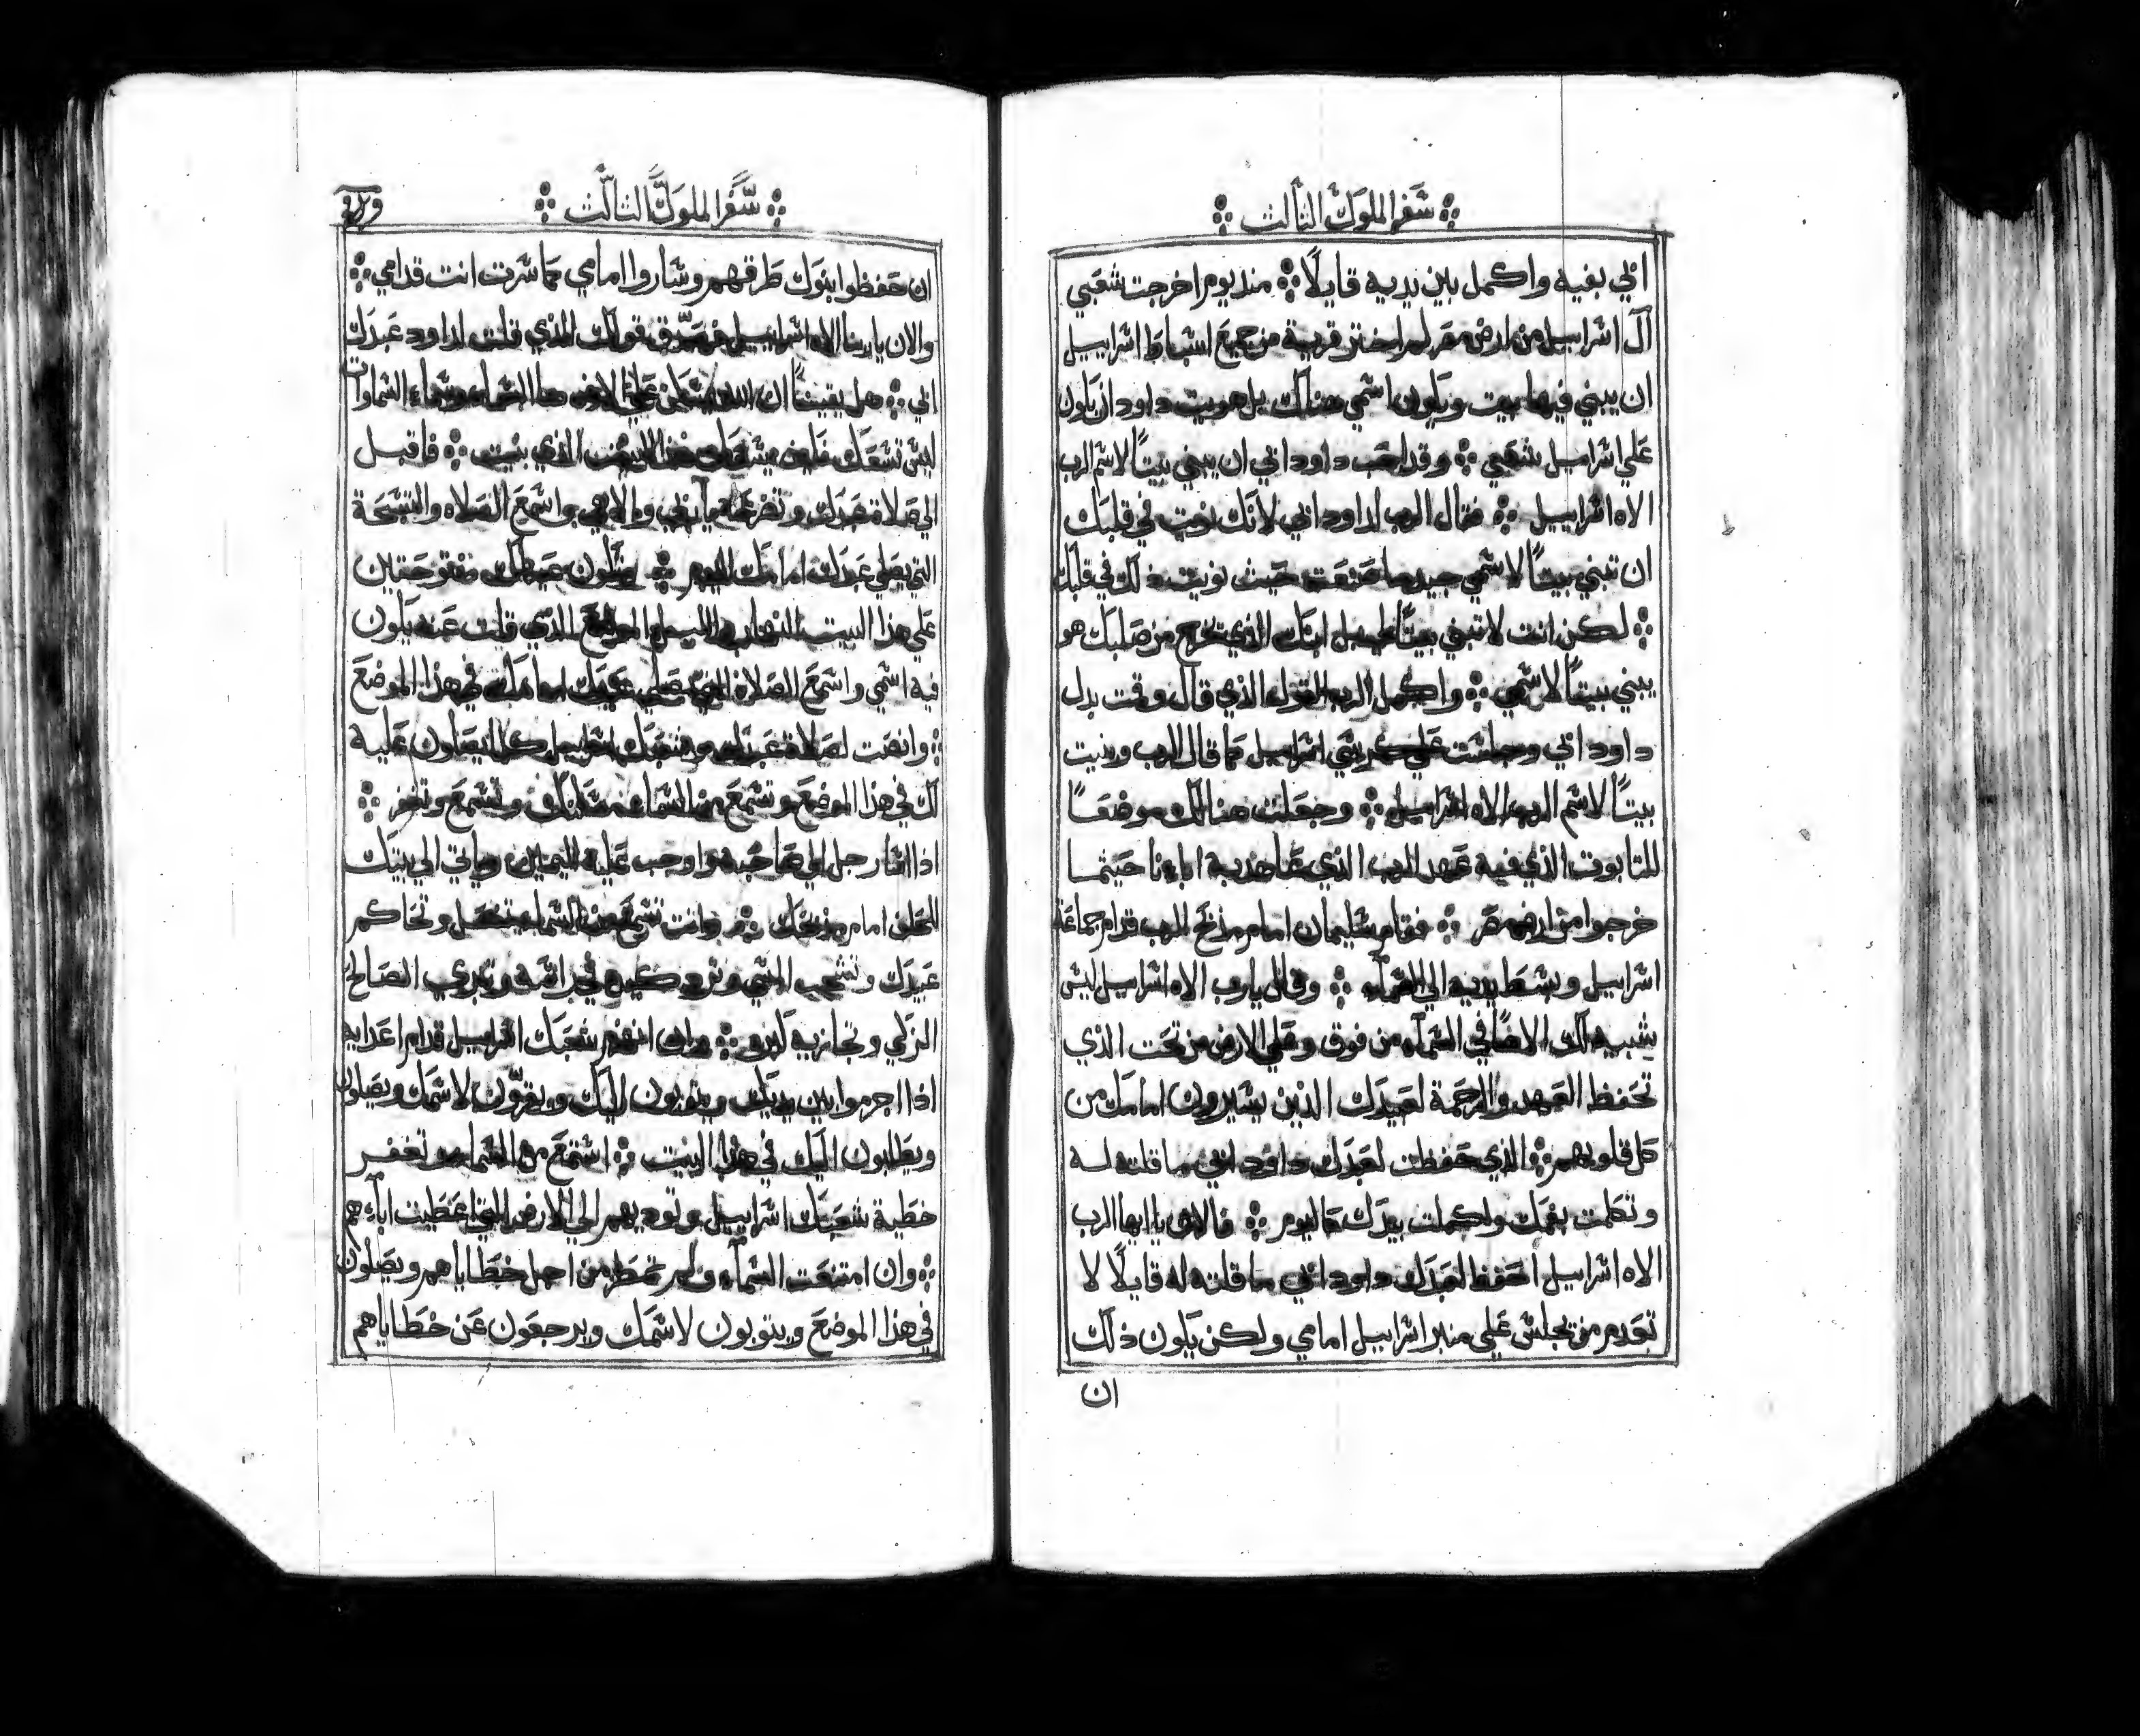 سفر الملوك الثالث
ابي بفيه واكمل بين يديه قايلًا منذ يوم اخرجت شعبي
آل اسراييل من ارض مصر لم اختر قرية من جميع اسباط اسراييل
ان يبني فيها بيت ويكون اسمي هناك بل هويت داود ان يكون
علي اسراييل شعبي وقد احب داود ابي ان يبني بيتًا لاسم الرب
الاه اسراييل فقال الرب لداود ابي لانك نويت في قلبك
ان تبني بيتًا لاسمي جيد ما صنعت حيث نويت ذلك في قلبك
لكن انت لا تبني بيتًا لي بل ابنك الذي يخرج من صلبك هو
يبني بيتًا لاسمي واكمل الرب القول الذي قال وقمت بدل
داود ابي وجلست علي كرسي اسراييل كما قال الرب وبنيت
بيتًا لاسم الرب الاه اسراييل وجعلت هنالك موضعًا
للتابوت الذي فيه عهد الرب الذي عاهد به اباءنا حيثما
خرجوا من ارض مصر فقام سليمان امام مذبح الرب قدام جماعة
اسراييل وبسط يديه الي السمآء وقال يارب الاه اسراييل ليس
يشبهك الاهًا في السمآء من فوق وعلي الارض من تحت الذي
تحفظ العهد والرحمة لعبيدك الذين يسيرون امامك من
كل قلوبهم الذي حفظت لعبدك داود ابي ما قلته له
وتكلمت بفمك واكملت بيدك كاليوم فالان يا ايها الرب
الاه اسراييل احفظ لعبدك داود ابي ما قلته له قايلًا لا
تعدم من يجلس علي منبر اسراييل امامي ولكن يكون ذلك
ان
سفر الملوك الثالث
ان حفظوا بنوك طرقهم وساروا امامي كما سرت انت قدامي
والان يا ربنا الاه اسراييل قولك الذي قلت لداود عبدك
ابي هل يقينًا ان الله يسكن علي الارض السماء وسماء السماوات
ليس تسعك هذا البيت الذي بنيت فاقبل
الي صلاة عبدك وتضرعه والاهي واسمع الصلاه والتسبحة
التي يصلي عبدك امامك اليوم لتكون عيناك مفتوحتين
علي هذا البيت النهار والليل الموضع الذي قلت عنه يكون
فيه اسمي واسمع الصلاة التي يصلي عبدك امامك في هذا الموضع
وانصت لصلاة عبدك وشعبك اسراييل كلما يصلون عليه
لك في هذا الموضع وتسمع من السماء وتسمع وتغفر
اذا اسا رجل الي صاحبه واوجب عليه اليمين وياتي الي بيتك
للحلف امام مذبحك وانت تسمع من السماء وتحاكم
عبيدك الصالح
الزكي وتجازيه وان انهزم شعبك اسراييل قدام اعدايه
اذا اجرموا بين يديك ويتوبون اليك ويقرّون لاسمك ويصلون
ويطلبون اليك في هذا البيت استمع من السماء وتغفر
خطية شعبك اسراييل وتوديهم الي الارض التي اعطيت اباءهم
وان امتنعت السمآء ولم تمطر من اجل خطاياهم ويصلون
في هذا الموضع ويتوبون لاسمك ويرجعون عن خطاياهم